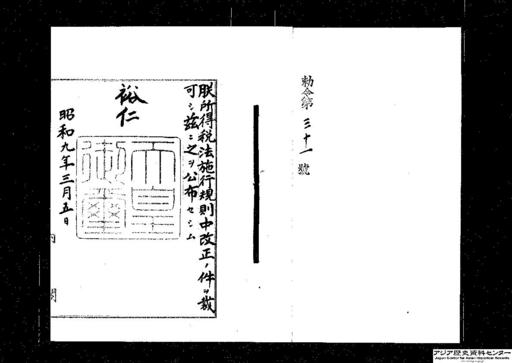 勅令第三十一號
朕所得税法施行規則中改正ノ件ヲ裁
可シ茲ニ之ヲ公布セシム
裕仁
天皇
御璽
昭和九年三月五日
内閣
アジア歴史資料センター
Japan Center for Asian Historical Records